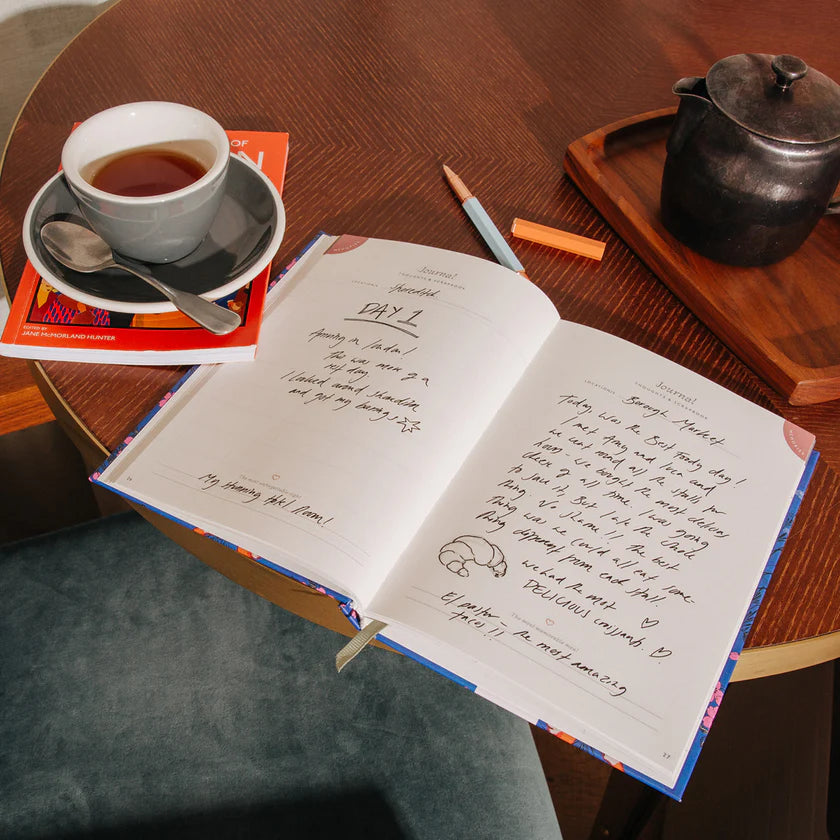 OF
EDITED BY
JANE McMORLAND HUNTER
Journal
THOUGHTS & SCRAPBOOK
LOCATIONS Shoreditch
DAY 1
Arriving in London!
This was more of a
rest day.
I looked around shoreditch
and got my bearings
The most unforgettable sight
My stunning Hotel Room!
26
Journal
THOUGHTS & SCRAPBOOK
LOCATIONS Borough Market
Today, was the Best Foody day!
I met Amy and Luca and
we went round all the stalls for
hours - we bought the most delicious
cheese of all time. I was going
to save it, But I ate the whole
thing. No shame!! The best
thing was we could all eat some-
thing different from each stall.
we had the most
DELICIOUS croissants.
The most memorable meal
El pastor - the most amazing
tacos!!
27